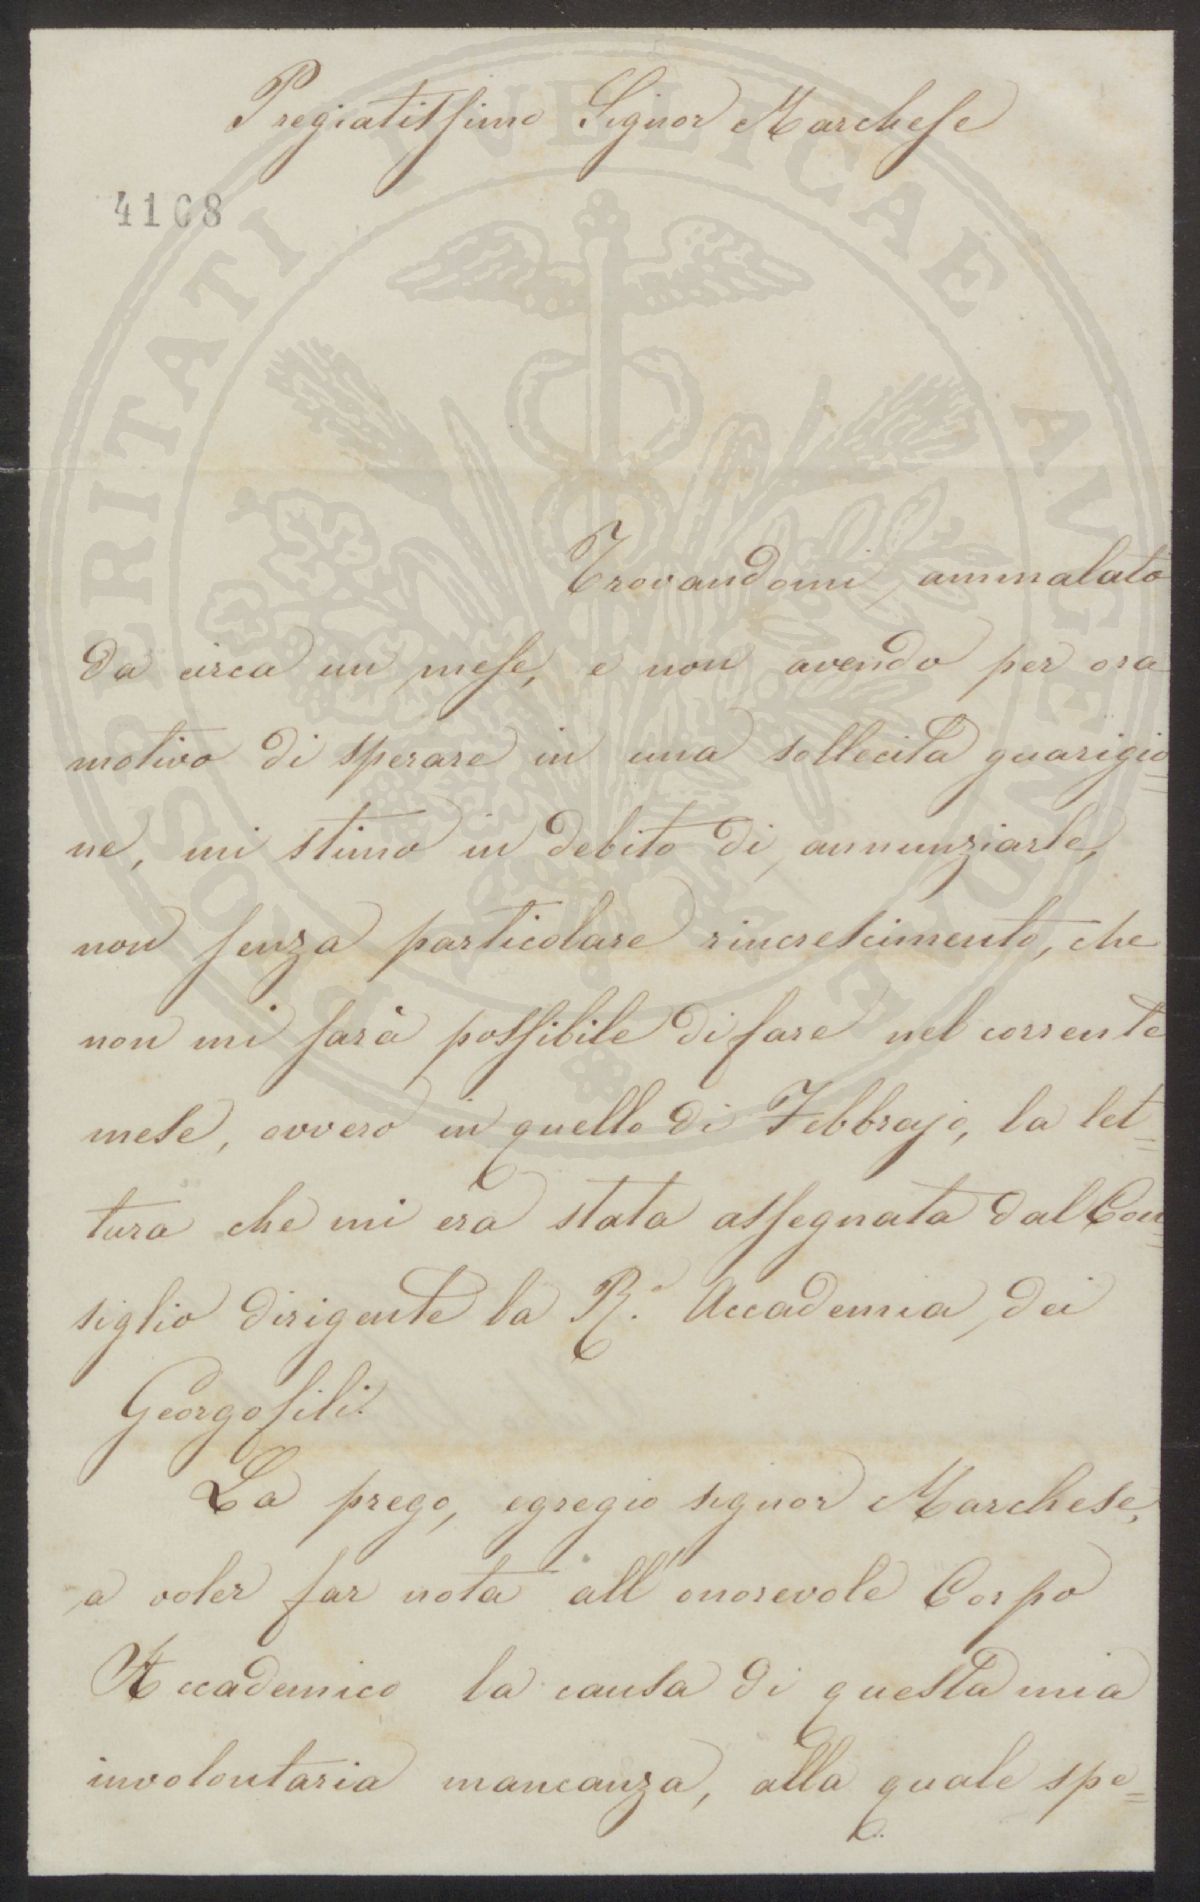 Pregiatissimo Signor Marchese
4108
Trovandomi ammalato
da circa un mese, e non avendo per ora
motivo di sperare in una sollecita guarigio=
ne, mi stimo in debito di annunziarle,
non senza particolare rincrescimento, che
non mi sarà possibile di fare nel corrente
mese, ovvero in quello di Febbrajo, la let=
tura che mi era stata assegnata dal Con=
siglio dirigente la R. Accademia dei
Georgofili.
La prego, egregio signor Marchese,
a voler far nota all'onorevole Corpo
Accademico la causa di questa mia
involontaria mancanza, alla quale spe=
PROSPERITATI PUBLICAE AUGENDAE